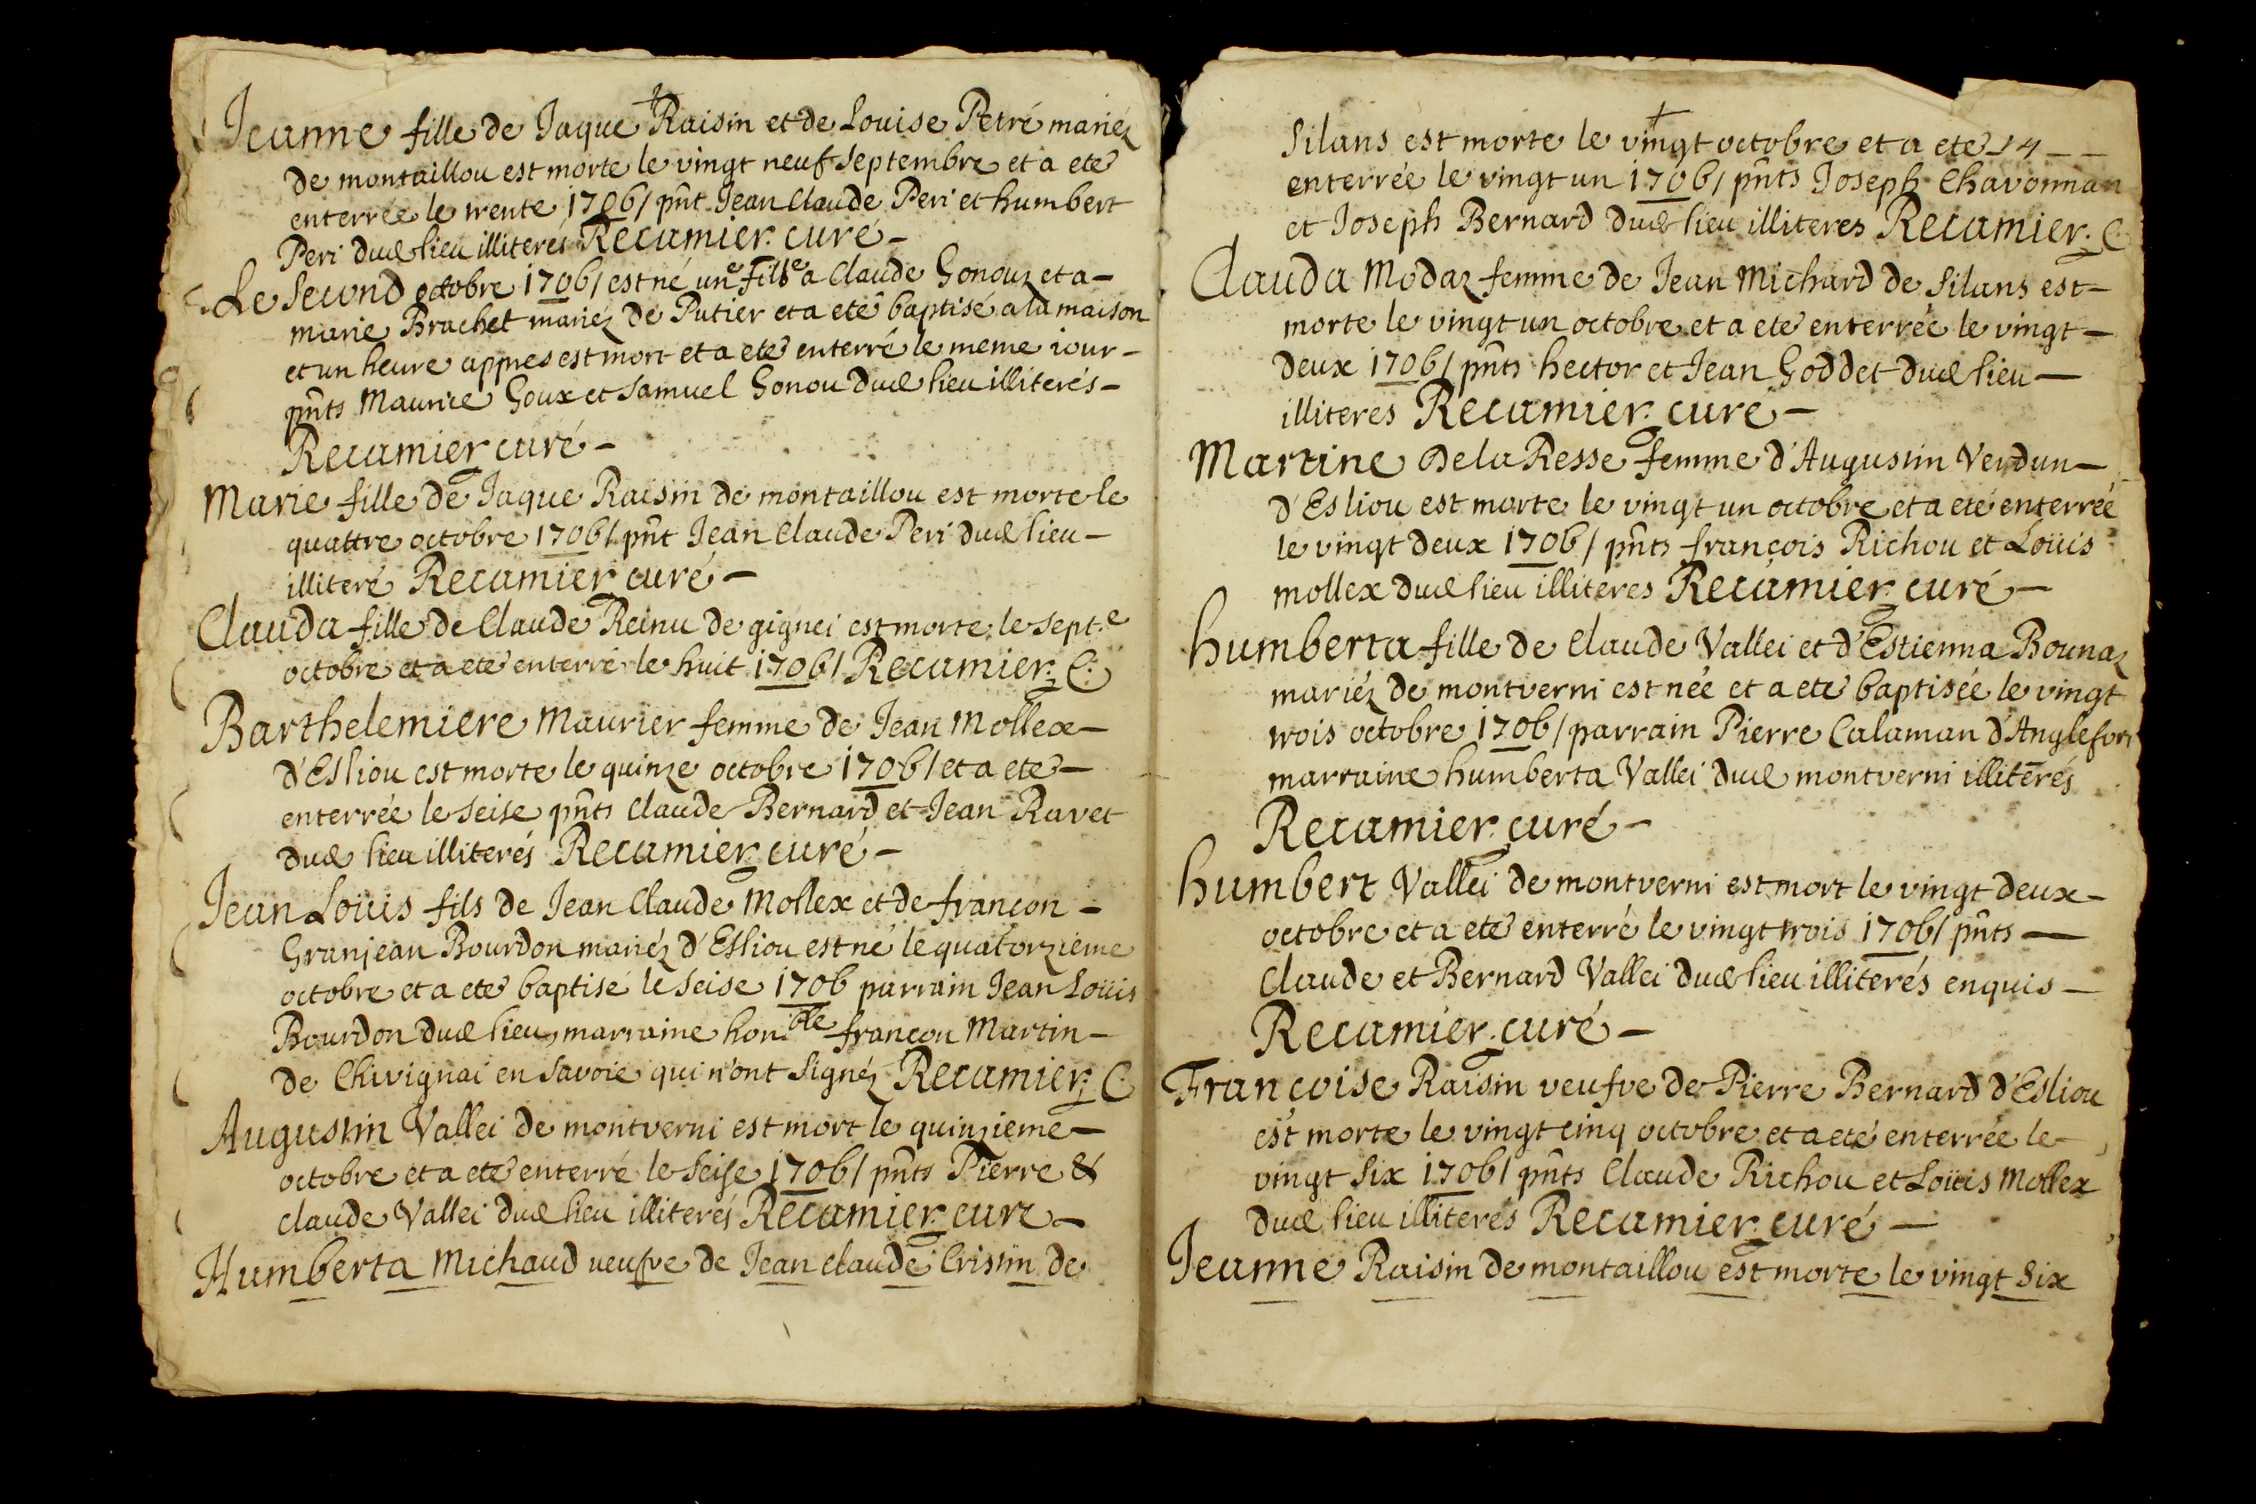 Jeanne fille de Jaque Raisin et de Louise Petré mariéz
de montaillou est morte le vingt neuf septembre et a eté
enterrée le trente 1706/ pñt Jean Claude Peri et humbert
Peri dud lieu illiterés Recamier. curé –
Le Second octobre 1706/ est né une fille a Claude Gonouz et a –
marie Brachet mariéz de Putier et a eté baptisé a la maison
et un heure appres est mort et a eté enterré le meme iour –
pñts Maurice Goux et Samuel Gonou dud lieu illiterés –
Recamier curé –
Marie fille de Jaque Raisin de montaillou est morte le
quattre octobre 1706/ pñt Jean Claude Peri dud lieu –
illiteré Recamier curé –
Clauda fille de Claude Reinu de gignei est morte le sept.e
octobre et a eté enterré le huit 1706/ Recamier. C.
Barthelemiere Maurier femme de Jean Mollex –
d'Esliou est morte le quinze octobre 1706/ et a eté –
enterrée le seise pñts Claude Bernard et Jean Ravet
dud lieu illiterés Recamier. curé –
Jean Loüis fils de Jean Claude Mollex et de françon –
Granjean Bourdon mariéz d'Esliou est né le quatorzieme
octobre et a eté baptisé le seise 1706 parrain Jean Loüis
Bourdon dud lieu, marraine hon.ble françon Martin –
de Chivignai en Savoie qui n'ont signéz Recamier. C.
Augustin Vallei de montverni est mort le quinzieme –
octobre et a eté enterré le seise 1706/ pñts Pierre &
claude Vallei dud lieu illiterés Recamier. curé –
Humberta Michaud veufve de Jean claude Cristin de
Silans est morte le vingt octobre et a eté 14 – –
enterrée le vingt un 1706/ pñts Joseph Chavonnan
et Joseph Bernard dud lieu illiteres Recamier. C.
Clauda Modaz femme de Jean Michard de Silans est –
morte le vingt un octobre et a eté enterrée le vingt –
deux 1706/ pñts hector et Jean Goddet dud lieu –
illiteres Recamier. curé –
Martine De la Resse femme d'Augustin Verdun –
d'Esliou est morte le vingt un octobre et a eté enterrée
le vingt deux 1706/ pñts françois Richou et Loüis
mollex dud lieu illiteres Recamier. curé –
humberta fille de Claude Vallei et d'Estienna Bounaz
mariéz de montverni est née et a eté baptisée le vingt
trois octobre 1706/ parrain Pierre Calaman d'Anglefort
marraine humberta Vallei dud montverni illiterés
Recamier. curé –
humbert Vallei de montverni est mort le vingt deux –
octobre et a eté enterré le vingt trois 1706/ pñts –
Claude et Bernard Vallei dud lieu illiterés enquis –
Recamier. curé –
Françoise Raisin veufve de Pierre Bernard d'Esliou
est morte le vingt cinq octobre et a eté enterrée le
vingt six 1706/ pñts Claude Richou et Loüis Mollex
dud lieu illiterés Recamier. curé –
Jeanne Raisin de montaillou est morte le vingt six